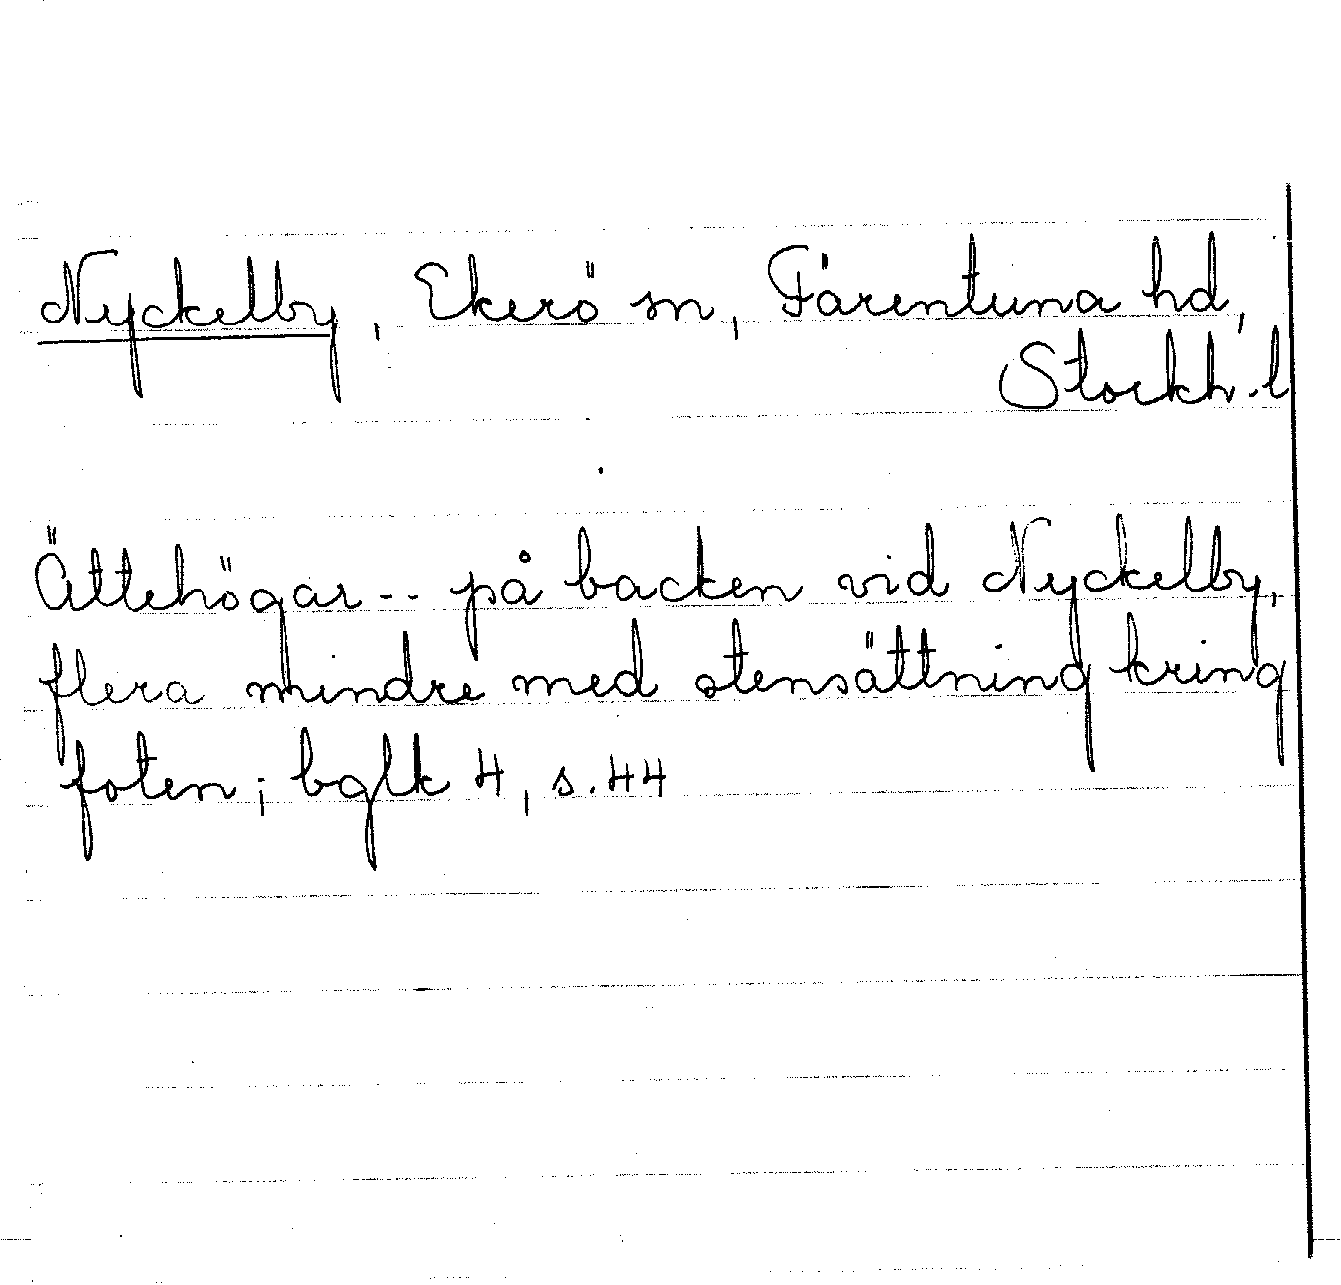 Nyckelby, Ekerö sn, Färentuna hd,
Stockh. l
Ättehögar -- på backen vid Nyckelby,
flera mindre med stensättning kring
foten; bglk 4, s. 44